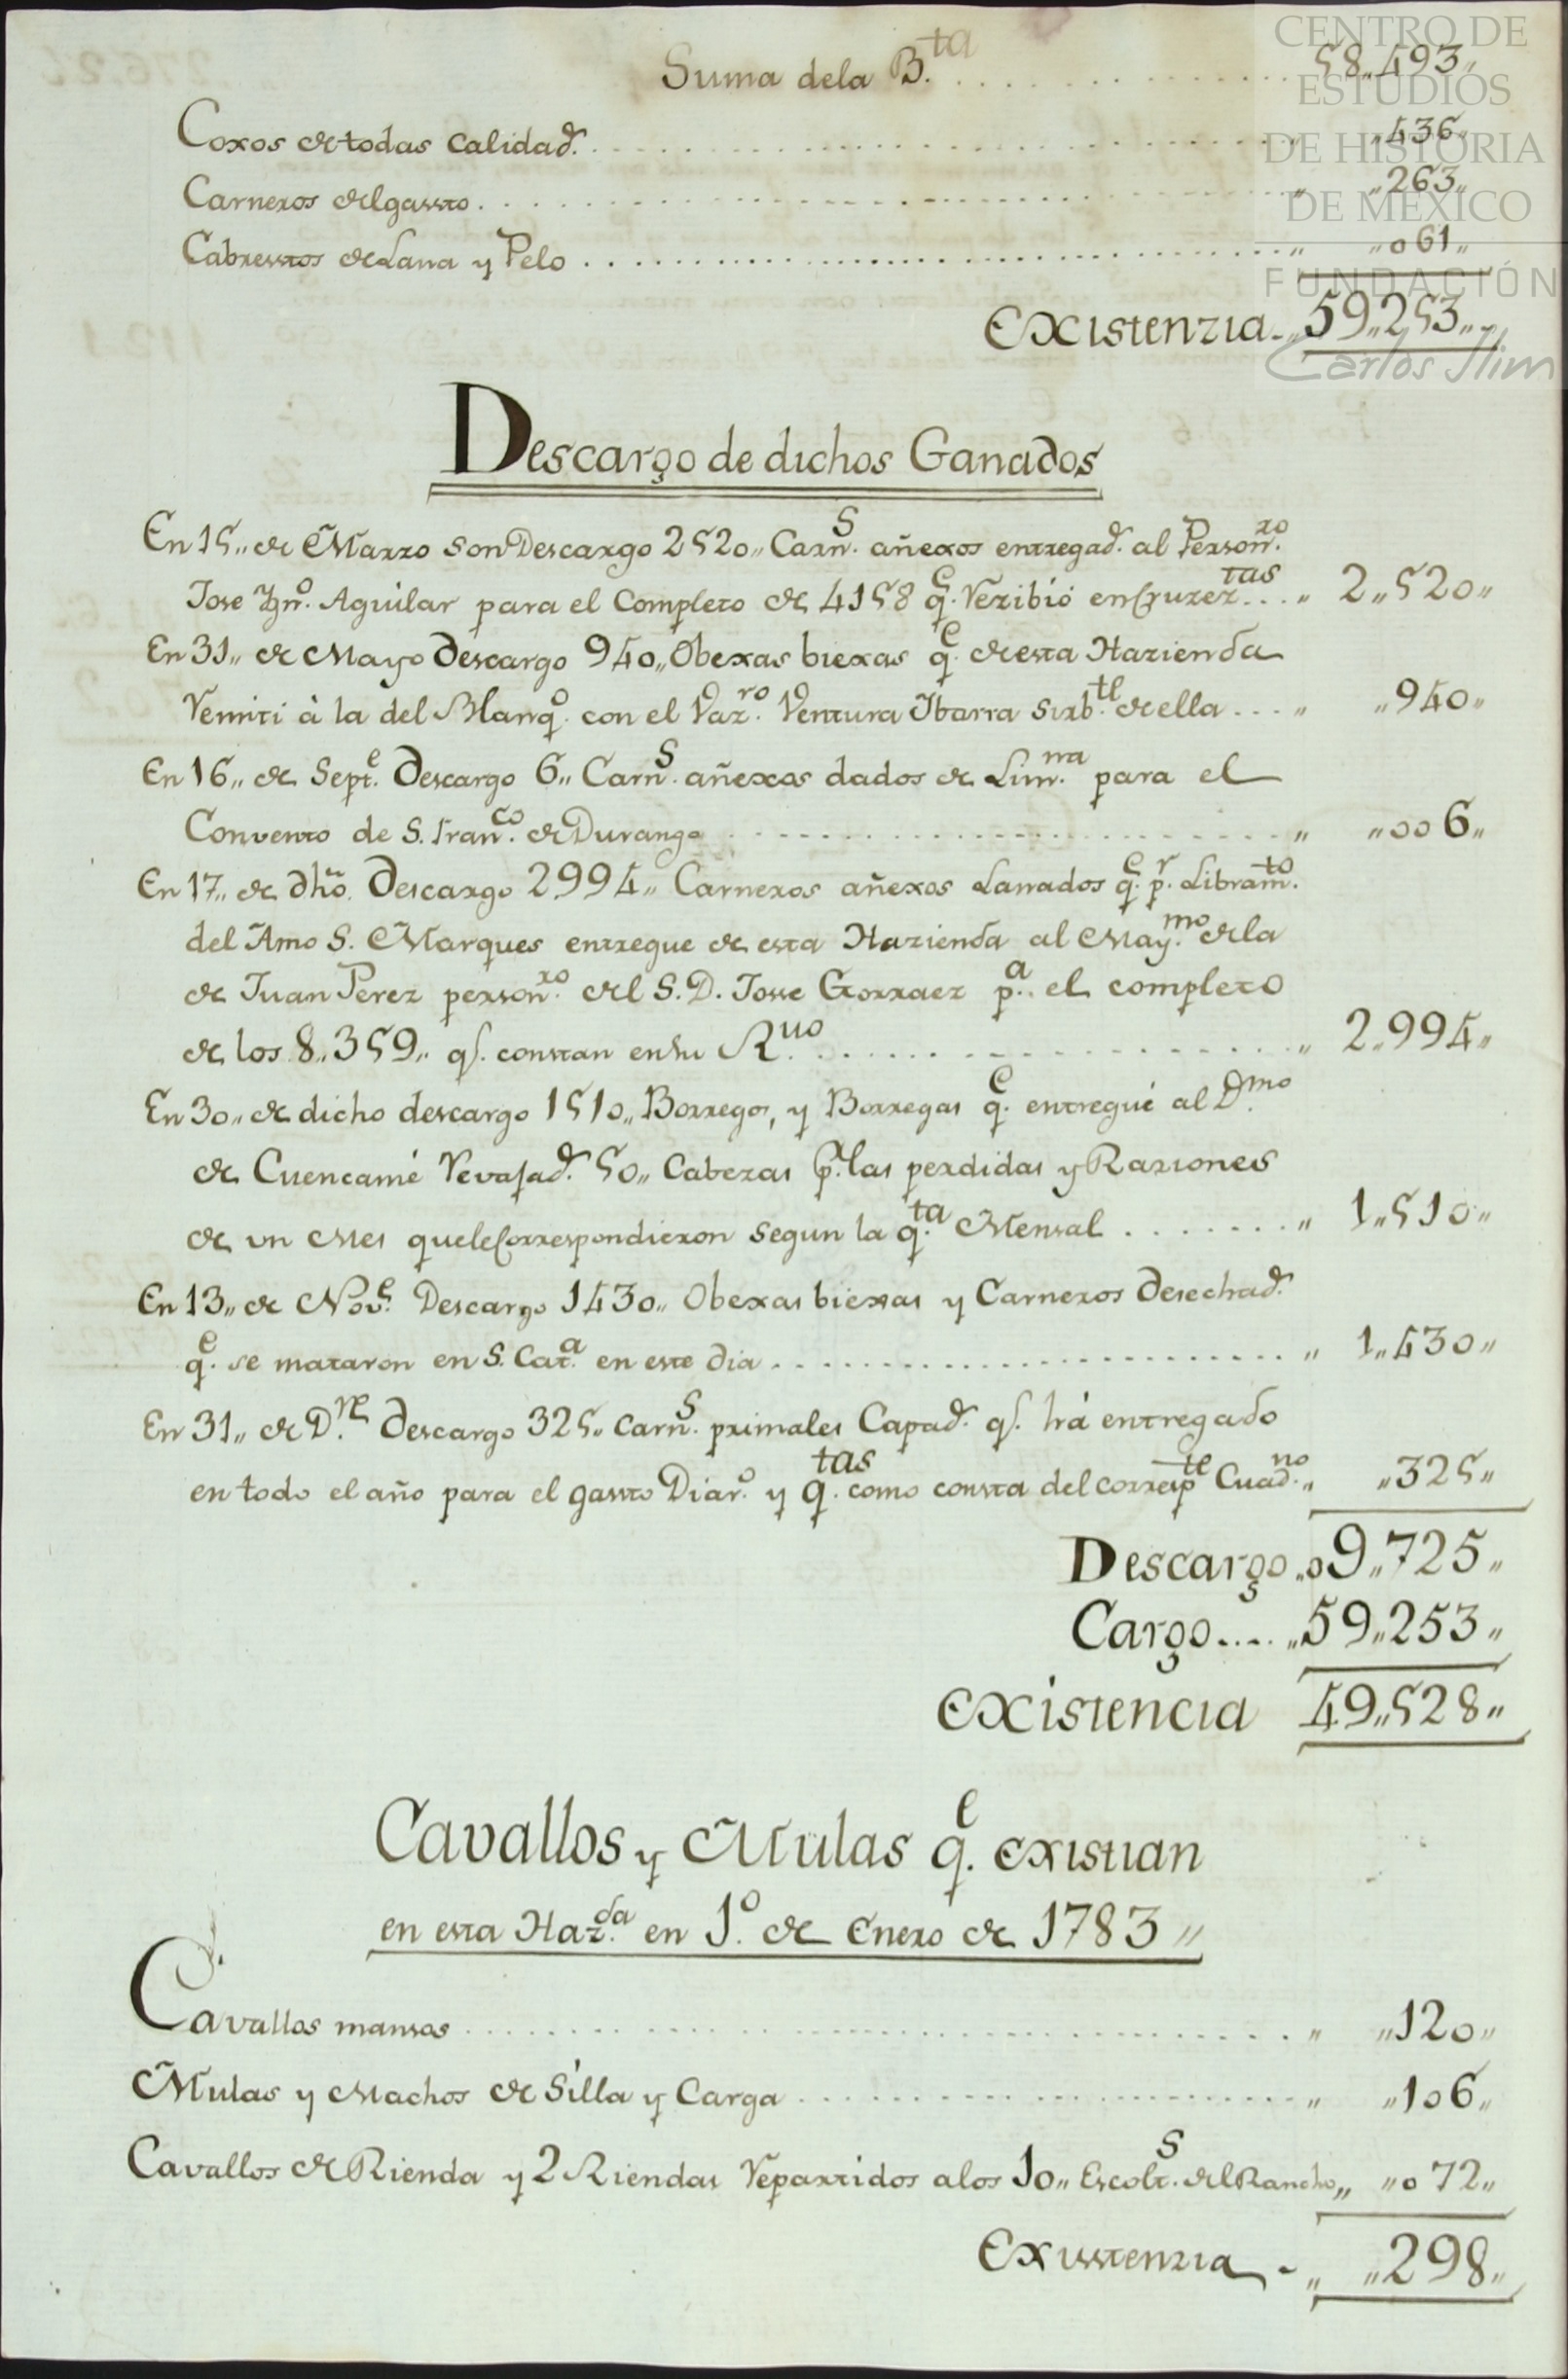 CENTRO DE
ESTUDIOS
DE HISTORIA
DE MÉXICO
FUNDACIÓN
Carlos Slim
Suma dela B.ta 58„493„
Coxos de todas calidad.s „436„
Carneros del gassto „263„
Cabresstos de Lana y Pelo „061„
Existenzia „59„253„
Descargo de dichos Ganados
En 15„ de Marzo son Descargo 2520„ Carn.s añexos entregad.s al Person.ro
Jose Ygn.o Aguilar para el Completo de 4158 q.e Rezibió en Quzez.tas 2„520„
En 31„ de Mayo Descargo 940„ Obexas biexas q.e de esta Hazienda
Remiti à la del Blanq.o con el Vaz.ro Ventura Ibarra Sirb.te de ella „940„
En 16„ de Sept.e Descargo 6„ Carn.s añexos dados de Lim.na para el
Convento de S. Fran.co de Durango „006„
En 17„ de dho. Descargo 2994„ Carneros añexos Lanados q.e p.r Libram.to
del Amo S. Marques entregue de esta Hazienda al May.mo de la
de Juan Perez person.ro del S. D. Josse Gorraez p.a el completo
de los 8„359„ q.e constan en su R.uo 2„994„
En 30„ de dicho descargo 1510„ Borregos, y Borregas q.e entregué al D.mo
de Cuencamé Revajad.s 50„ Cabezas p.r las perdidas y Raziones
de un Mes que le Correspondieron segun la q.ta Mensal 1„510„
En 13„ de Nov.e Descargo 1430„ Obexas biexas y Carneros desechad.s
q.e se mataron en S. Cat.a en este dia 1„430„
En 31„ de D.re descargo 325„ Carn.s primales Capad.s q.e há entregado
en todo el año para el gassto Diar.o y q.tas como consta del corresp.te Cuad.no „325„
Descargo „09„725„
Cargo „59„253„
Existencia 49„528„
Cavallos y Mulas q.e existian
en esta Haz.da en 1.o de Enero de 1783„
Cavallos mansos „120„
Mulas y Machos de Silla y Carga „106„
Cavallos de Rienda y 2 Riendas Repartidos a los 10„ Escolt.s del Rancho „072„
Exisstenzia „298„